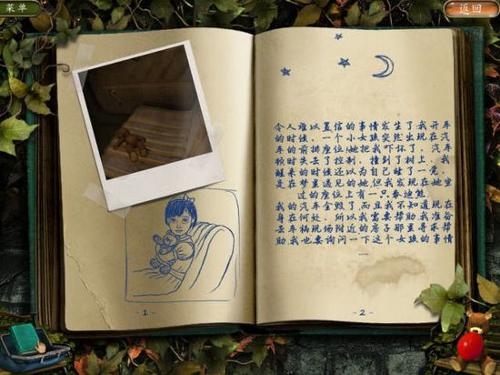 菜单
返回
令人难以置信的事情发生了我开车
的时候，一个小女孩突然出现在汽
车的前排座位!她把我吓坏了，汽车
顿时失去了控制，撞到了树上，我
醒来的时候还以为自己睡了一觉，
是在梦里遇见的她但我发现在她坐
过的座位上有一只泰迪熊
我的汽车全毁了而且我不知道现在
身在何处，所以我需要帮助我准备
去车祸现场附近的房子那里寻求帮
助我也要询问一下这个女孩的事情
...
- 1 -
- 2 -